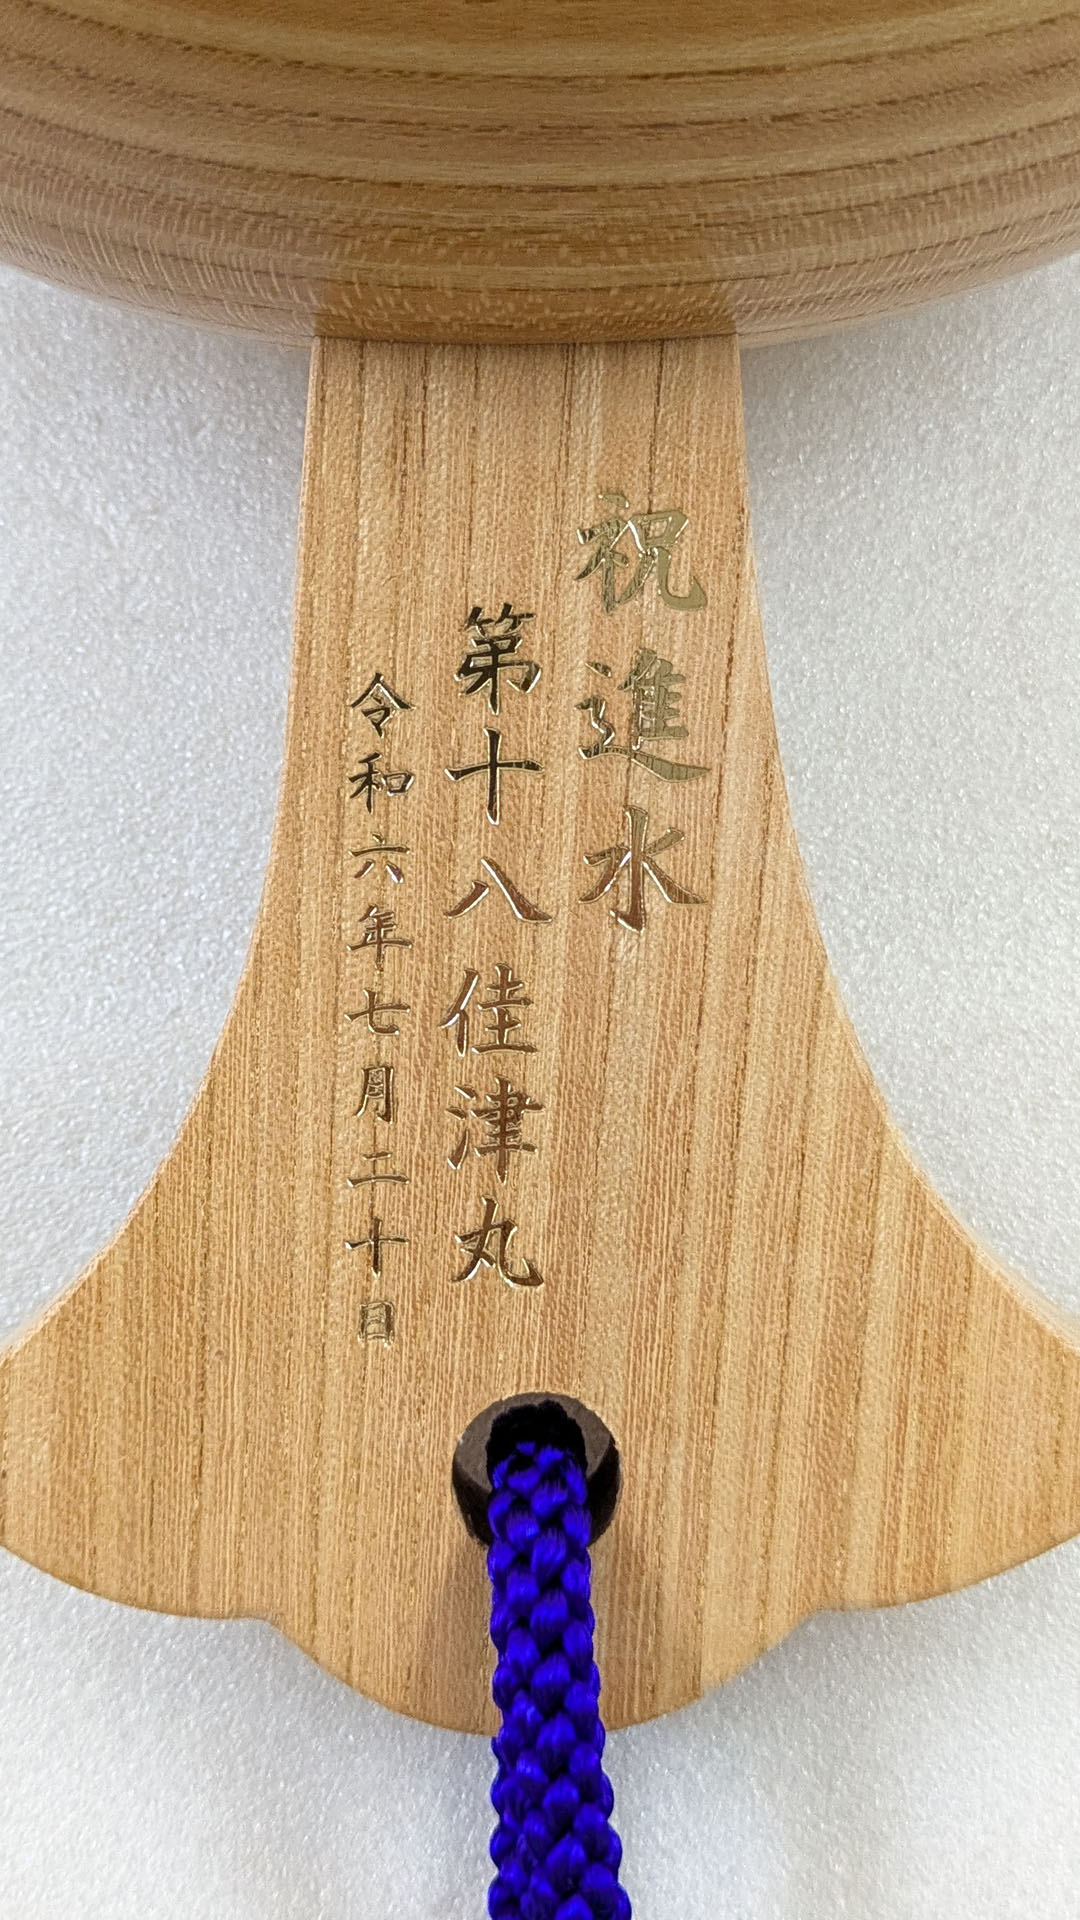 祝進水
第十八佳津丸
令和六年七月二十日